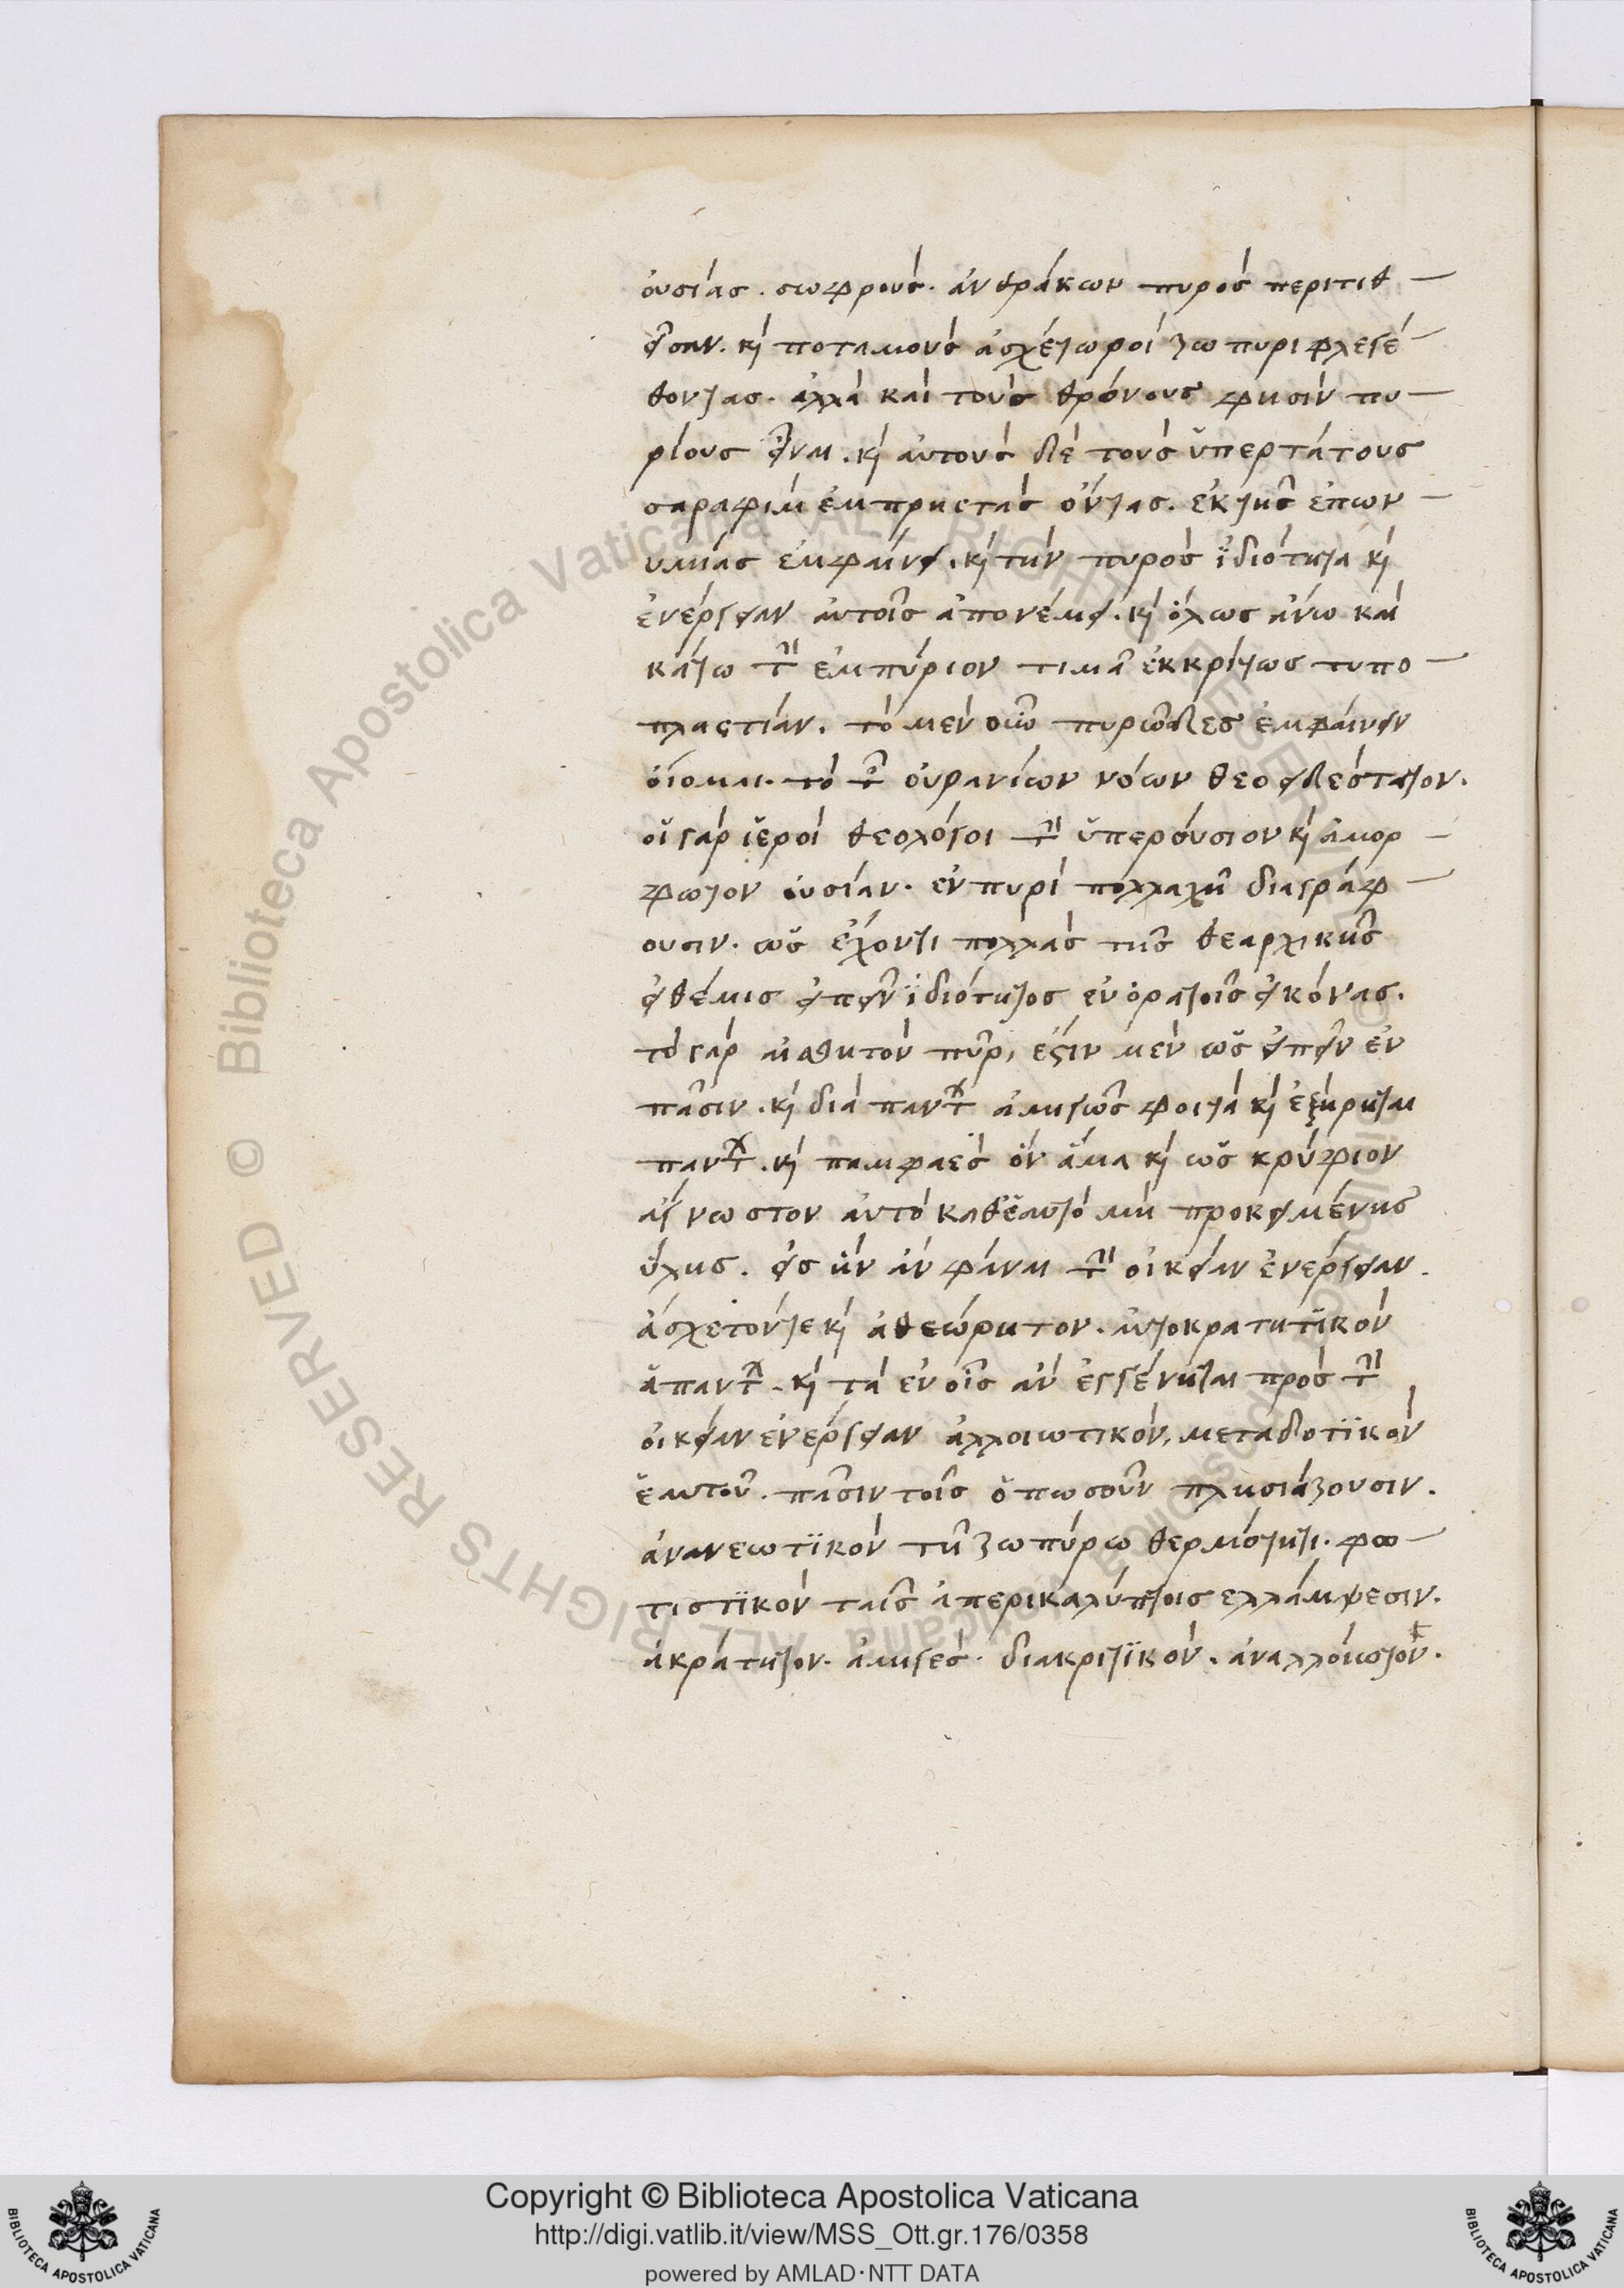 ουσίας. σωρούς. ἀνθράκων πυρὸς περιτιθ
εῖσαν. κὶ ποταμοὺς ἀσχέτῳ ροίζω πυριφλεγέ
θοντας. ἀλλὰ καὶ τοὺς θρόνους φησὶν πυ
ρίους εἶναι. κὶ αὐτοὺς δὲ τοὺς ὑπερτάτους
σαραφὶμ ἐμπρηστὰς ὄντας. ἐκ τῆς ἐπων
υμίας ἐμφαίνει. κὶ τὴν πυρὸς ἰδιότητα κὶ
ἐνέργειαν αὐτοῖς ἀπονέμει. κὶ ὅλως ἄνω καὶ
κάτω τὴν ἐμπύριον τιμᾶ ἐκκρίτως τυπο
πλαστίαν. τὸ μὲν οὖν πυρῶδες ἐμφαίνειν
οἴομαι. τὸ τῶν οὐρανίων νόων θεοειδέστατον.
οἱ γὰρ ἱεροὶ θεολόγοι τὴν ὑπερούσιον κὶ ἀμόρ
φωτον οὐσίαν. ἐν πυρὶ πολλαχῆ διαγράφ
ουσιν. ὡς ἔχοντι πολλὰς τῆς θεαρχικῆς
εἰ θέμις εἰπεῖν ἰδιότητος ἐν ὁρατοῖς εἰκόνας.
τὸ γὰρ αἰσθητὸν πῦρ, ἔστιν μὲν ὡς εἰπεῖν ἐν
πᾶσιν. κὶ διὰ πάντων ἀμιγῶς φοιτᾶ κὶ ἐξήρηται
πάντων. κὶ παμφαὲς ὂν ἅμα κὶ ὡς κρύφιον
ἄγνωστον αὐτὸ καθ' ἑαυτὸ μὴ προκειμένης
ὕλης. εἰς ἣν ἀν φάναι τὴν οἰκείαν ἐνέργειαν.
ἄσχετόν τε κὶ ἀθεώρητον. αὐτοκρατητικὸν
ἁπάντων. κὶ τὰ ἐν οἷς ἀν ἐγγένηται πρὸς τὴν
οἰκείαν ἐνέργειαν ἀλλοιωτικόν, μεταδοτικὸν
ἑαυτοῦ. πᾶσιν τοῖς ὁπωσοῦν πλησιάζουσιν.
ἀνανεωτικὸν τῆ ζωπύρω θερμότητι. φω
τιστικὸν ταῖς ἀπερικαλύπτοις ἐλλάμψεσιν.
ἀκράτητον. ἀμιγές. διακριτικόν. ἀναλλοίωτον.
Copyright © Biblioteca Apostolica Vaticana
http://digi.vatlib.it/view/MSS_Ott.gr.176/0358
powered by AMLAD·NTT DATA
BIBLIOTECA APOSTOLICA VATICANA
BIBLIOTECA APOSTOLICA VATICANA